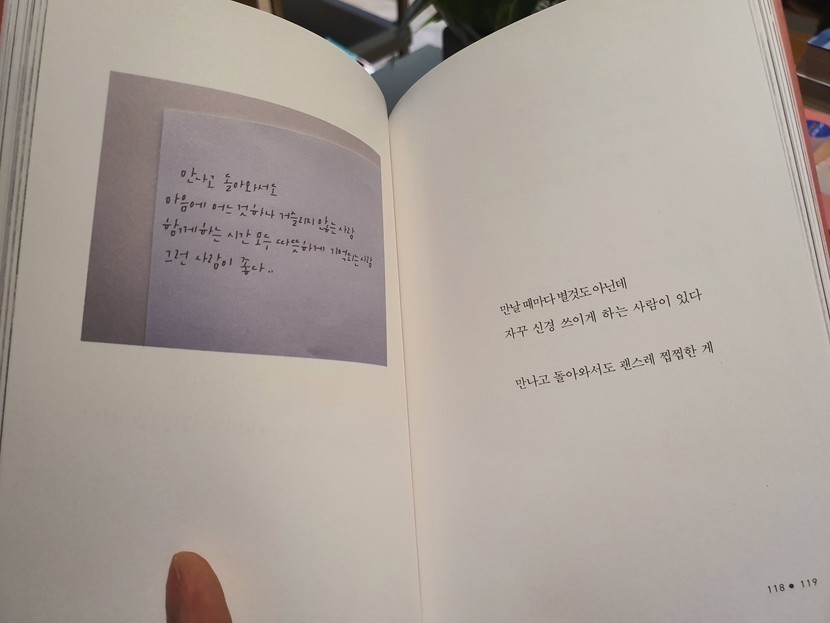 만나고 돌아와서도
마음에 어느 것 하나 거슬리지 않는 사람
함께하는 시간 모두 따뜻하게 기억되는 사람
그런 사람이 좋다..
만날 때마다 별것도 아닌데
자꾸 신경 쓰이게 하는 사람이 있다
만나고 돌아와서도 괜스레 찝찝한 게
118 ● 119